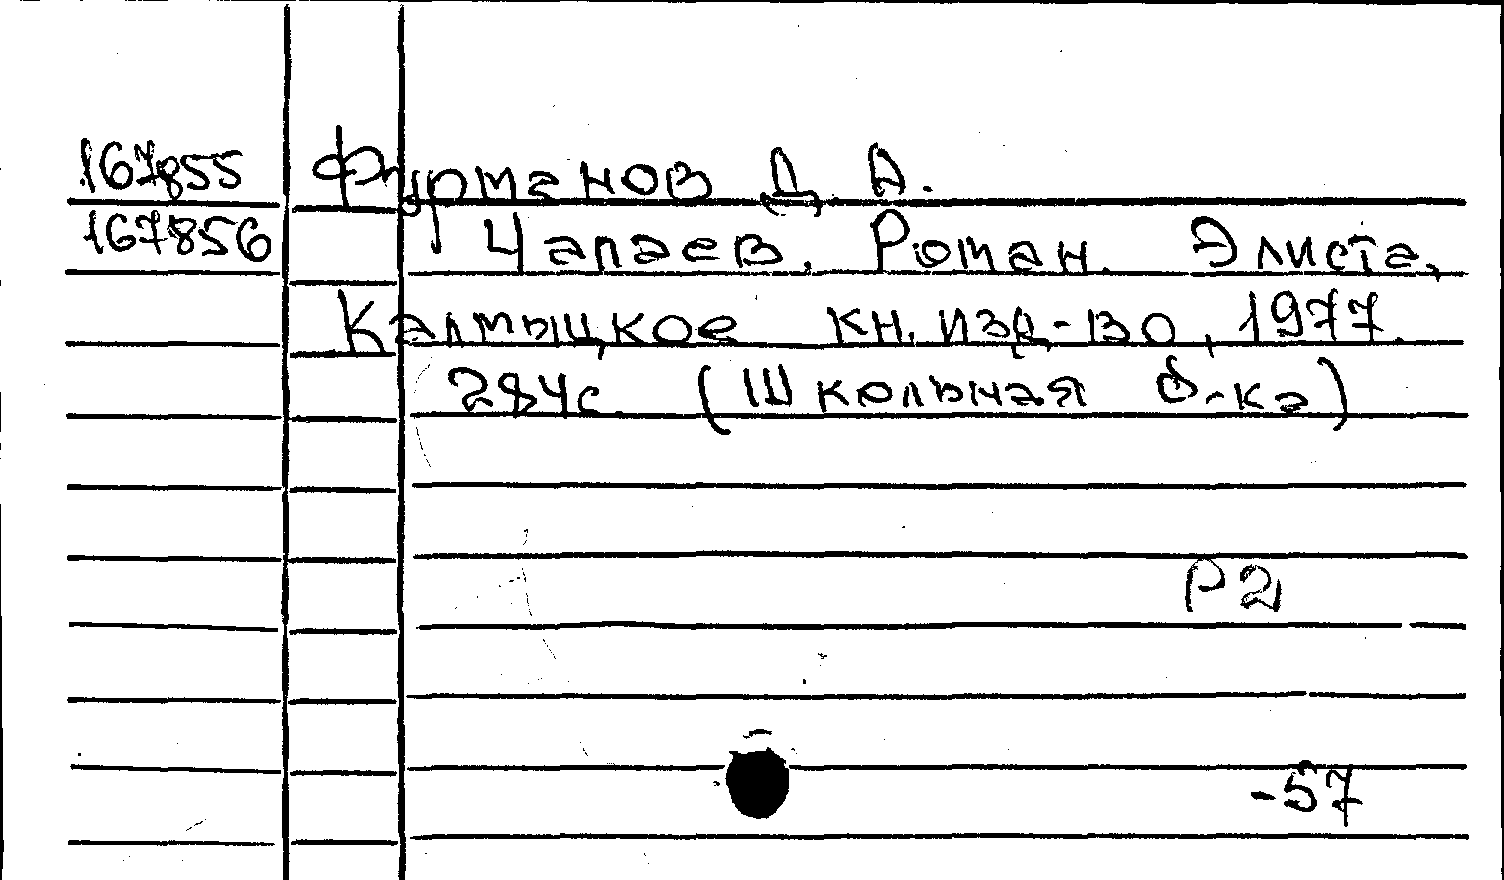 167855 Фурманов Д. А.
167856 Чапаев. Роман. Элиста,
Калмыцкое кн. изд-во, 1977.
284с. (Школьная б-ка)
Р2
-57